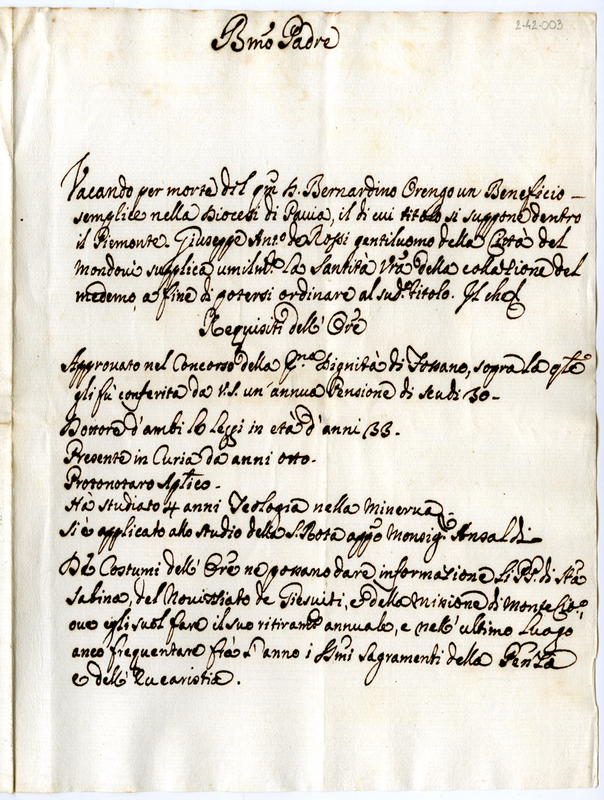 2-42-003
Bmo Padre
Vacando per morte del qm D. Bernardino Orengo un Beneficio
semplice nella Diocesi di Pavia, il di cui titolo si suppone dentro
il Piemonte. Giuseppe Anto. de Rossi gentiluomo della Città del
Mondovi supplica umilmte. la Santità Vra della collazione del
medemo, a fine di potersi ordinare al sudo. titolo. Il che
Requisiti dell' Ore
Approvato nel Concorso della Pma Dignità di Fossano, sopra la qle
gli fù conferita da V.S. un' annua Pensione di scudi 30-
Dottore d'ambi le Leggi in età d'anni 33.
Presente in Curia da anni otto.
Protonotaro Aplico.
Hà studiato 4 anni Teologia nella Minerva.
Si è applicato allo studio della S. Rota appo Monsigr. Ansaldi
De Costumi dell' Ore ne possano dare informazione li PP. di Sta
Sabina, del Novizziato de Giesuiti, e della Missione di Monte
ove egli suol fare il suo ritiramto annuale, e nell' ultimo luogo
anco frequentare frà l'anno i SSmi Sagramenti della Penza
e dell' Eucaristia.